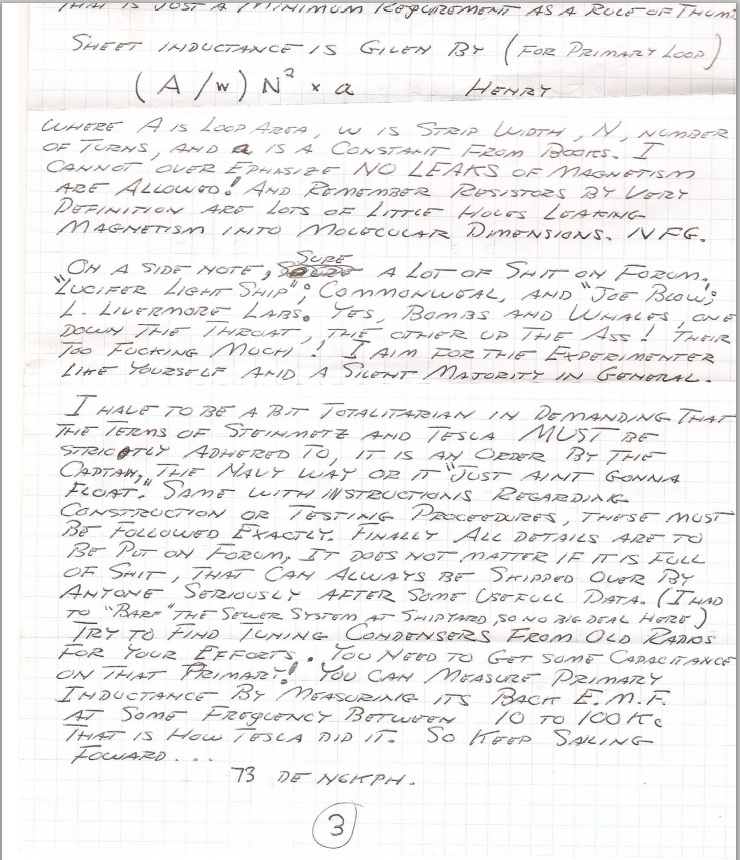 THAT IS JUST A MINIMUM REQUIREMENT AS A RULE OF THUM
SHEET INDUCTANCE IS GIVEN BY (FOR PRIMARY LOOP)
(A/W) N² × a HENRY
WHERE A IS LOOP AREA, W IS STRIP WIDTH, N, NUMBER
OF TURNS, AND a IS A CONSTANT FROM BOOKS. I
CANNOT OVER EPHASIZE NO LEAKS OF MAGNETISM
ARE ALLOWED! AND REMEMBER RESISTORS BY VERY
DEFINITION ARE LOTS OF LITTLE HOLES LEAKING
MAGNETISM INTO MOLECULAR DIMENSIONS. NFG.
SURE
ON A SIDE NOTE, A LOT OF SHIT ON FORUM.
"LUCIFER LIGHT SHIP"; COMMONWEAL, AND "JOE BLOW;
L. LIVERMORE LABS. YES, BOMBS AND WHALES, ONE
DOWN THE THROAT, THE OTHER UP THE ASS! THEIR
TOO FUCKING MUCH! I AIM FOR THE EXPERIMENTER
LIKE YOURSELF AND A SILENT MAJORITY IN GENERAL.
I HAVE TO BE A BIT TOTALITARIAN IN DEMANDING THAT
THE TERMS OF STEINMETZ AND TESLA MUST BE
STRICTLY ADHERED TO, IT IS AN ORDER BY THE
CAPTAIN, THE NAVY WAY OR IT "JUST AINT GONNA
FLOAT." SAME WITH INSTRUCTIONS REGARDING
CONSTRUCTION OR TESTING PROCEEDURES, THESE MUST
BE FOLLOWED EXACTLY. FINALLY ALL DETAILS ARE TO
BE PUT ON FORUM, IT DOES NOT MATTER IF IT IS FULL
OF SHIT, THAT CAN ALWAYS BE SKIPPED OVER BY
ANYONE SERIOUSLY AFTER SOME USEFULL DATA. (I HAD
TO "BARF" THE SEWER SYSTEM AT SHIPYARD, SO NO BIG DEAL HERE)
TRY TO FIND TUNING CONDENSERS FROM OLD RADIOS
FOR YOUR EFFORTS. YOU NEED TO GET SOME CAPACITANCE
ON THAT PRIMARY! YOU CAN MEASURE PRIMARY
INDUCTANCE BY MEASURING ITS BACK E.M.F.
AT SOME FREQUENCY BETWEEN 10 TO 100 KC
THAT IS HOW TESLA DID IT. SO KEEP SAILING
FOWARD...
73 DE N6KPH.
3